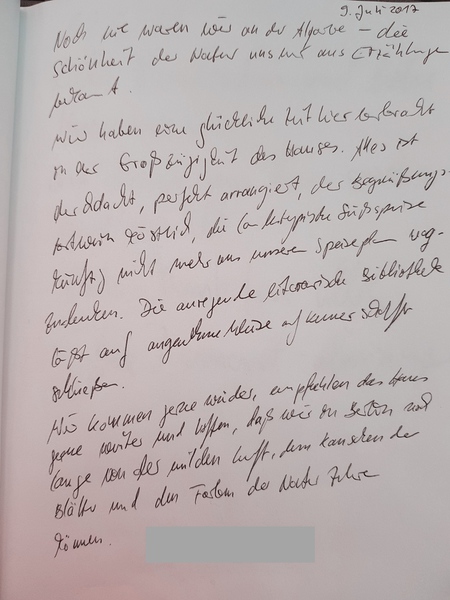 9. Juli 2017
Noch nie waren wir an der Algarve – die
Schönheit der Natur uns nur aus Erzählungen
bekannt.
Wir haben eine glückliche Zeit hier verbracht
in der Großzügigkeit des Hauses. Alles ist
durchdacht, perfekt arrangiert, der Begrüßungs-
portwein köstlich, die landestypische Süßspeise
künftig nicht mehr aus unserem Speiseplan weg-
zudenken. Die anregende literarische Bibliothek
läßt auf angenehme Weise auf
schließen.
Wir kommen gerne wieder, empfehlen das Haus
gerne weiter und hoffen, daß wir in Berlin noch
lange von der milden Luft, dem Rauschen der
Blätter und den Farben der Natur
können.